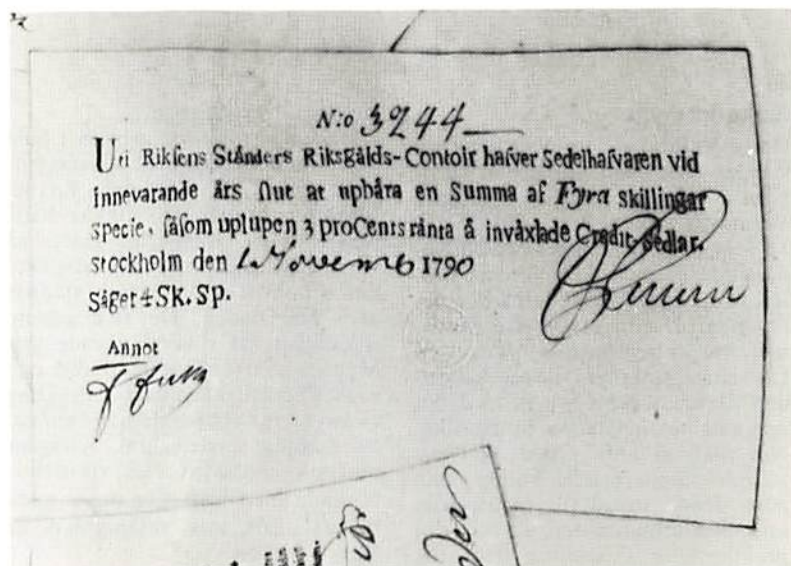 N:o 3244
Uti Rikſens Ständers Riksgälds-Contoir hafver Sedelhafvaren vid
innevarande års ſlut at upbära en Summa af Fyra skillingar
specie, ſåſom uplupen 3 proCents ränta å invåxlade Credit-Sedlar.
Stockholm den 1. Novemb 1790
Säger 4 Sk. Sp.
Annot